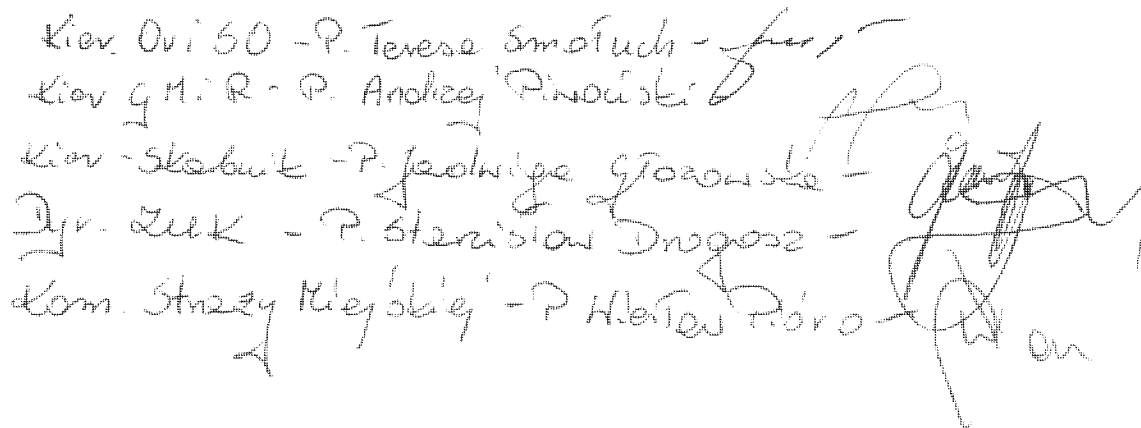 Kier. OviSO - P. Teresa Smołuch -
Kier GMiR - P. Andrzej Piwoński -
Kier - Skarbnik - P. Jadwiga Głozowska -
Dyr. ZUK - P. Stanisław Drogosz -
Kom. Straży Miejskiej - P Wiesław Pióro -